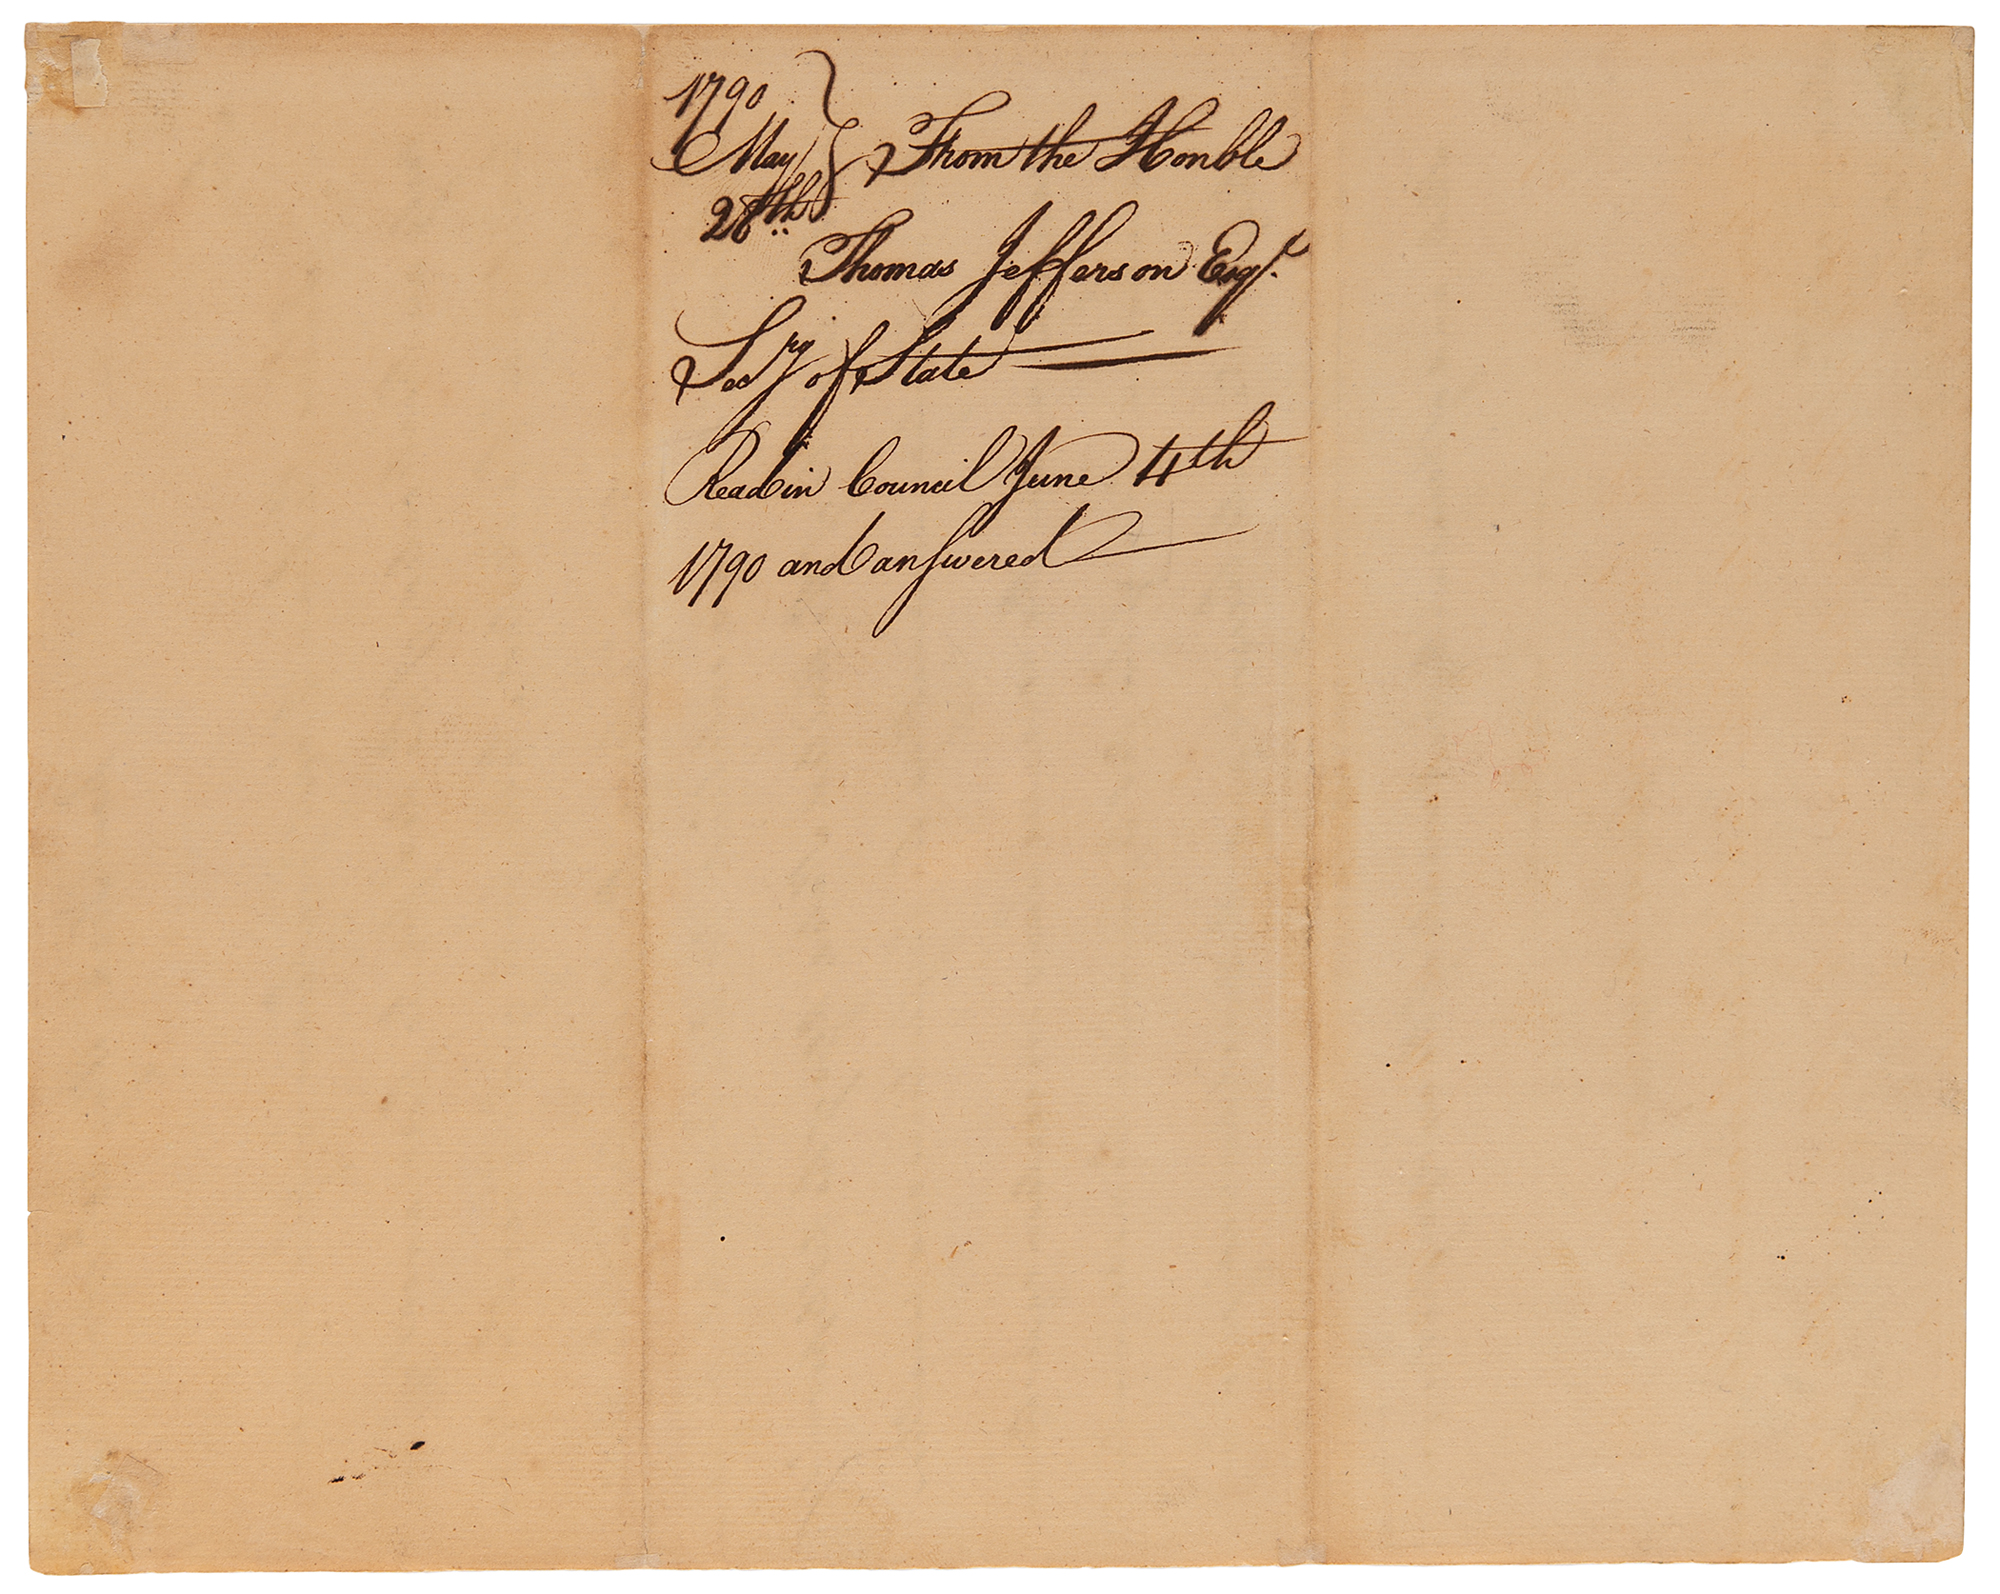 1790
May
28th
From the Honble
Thomas Jefferson Esqr.
Secry of State
Read in Council June 4th
1790 and answered